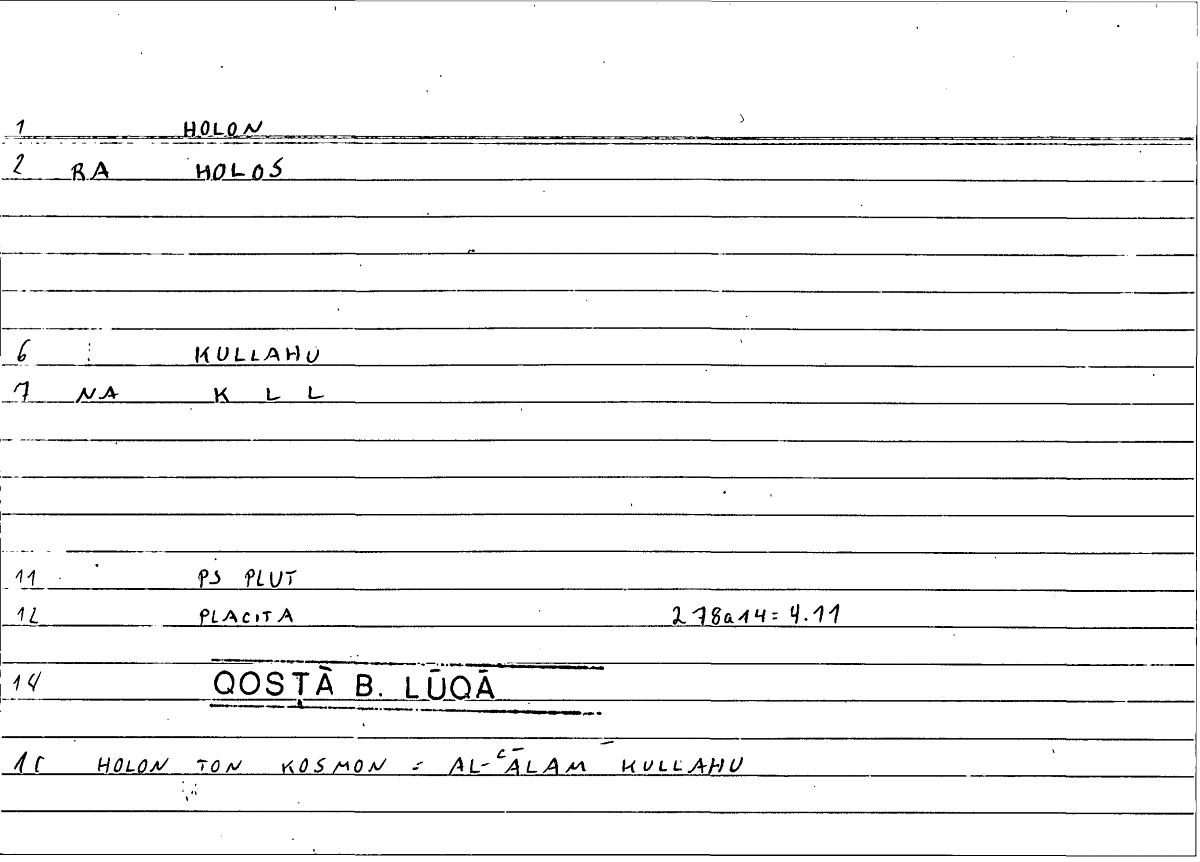 1 HOLON
2 RA HOLOS
6 KULLAHU
7 NA K L L
11 PS PLUT
12 PLACITA 278a14=4.11
14 QOSṬĀ B. LŪQĀ
15 HOLON TON KOSMON = AL-ʿĀLAM KULLAHU